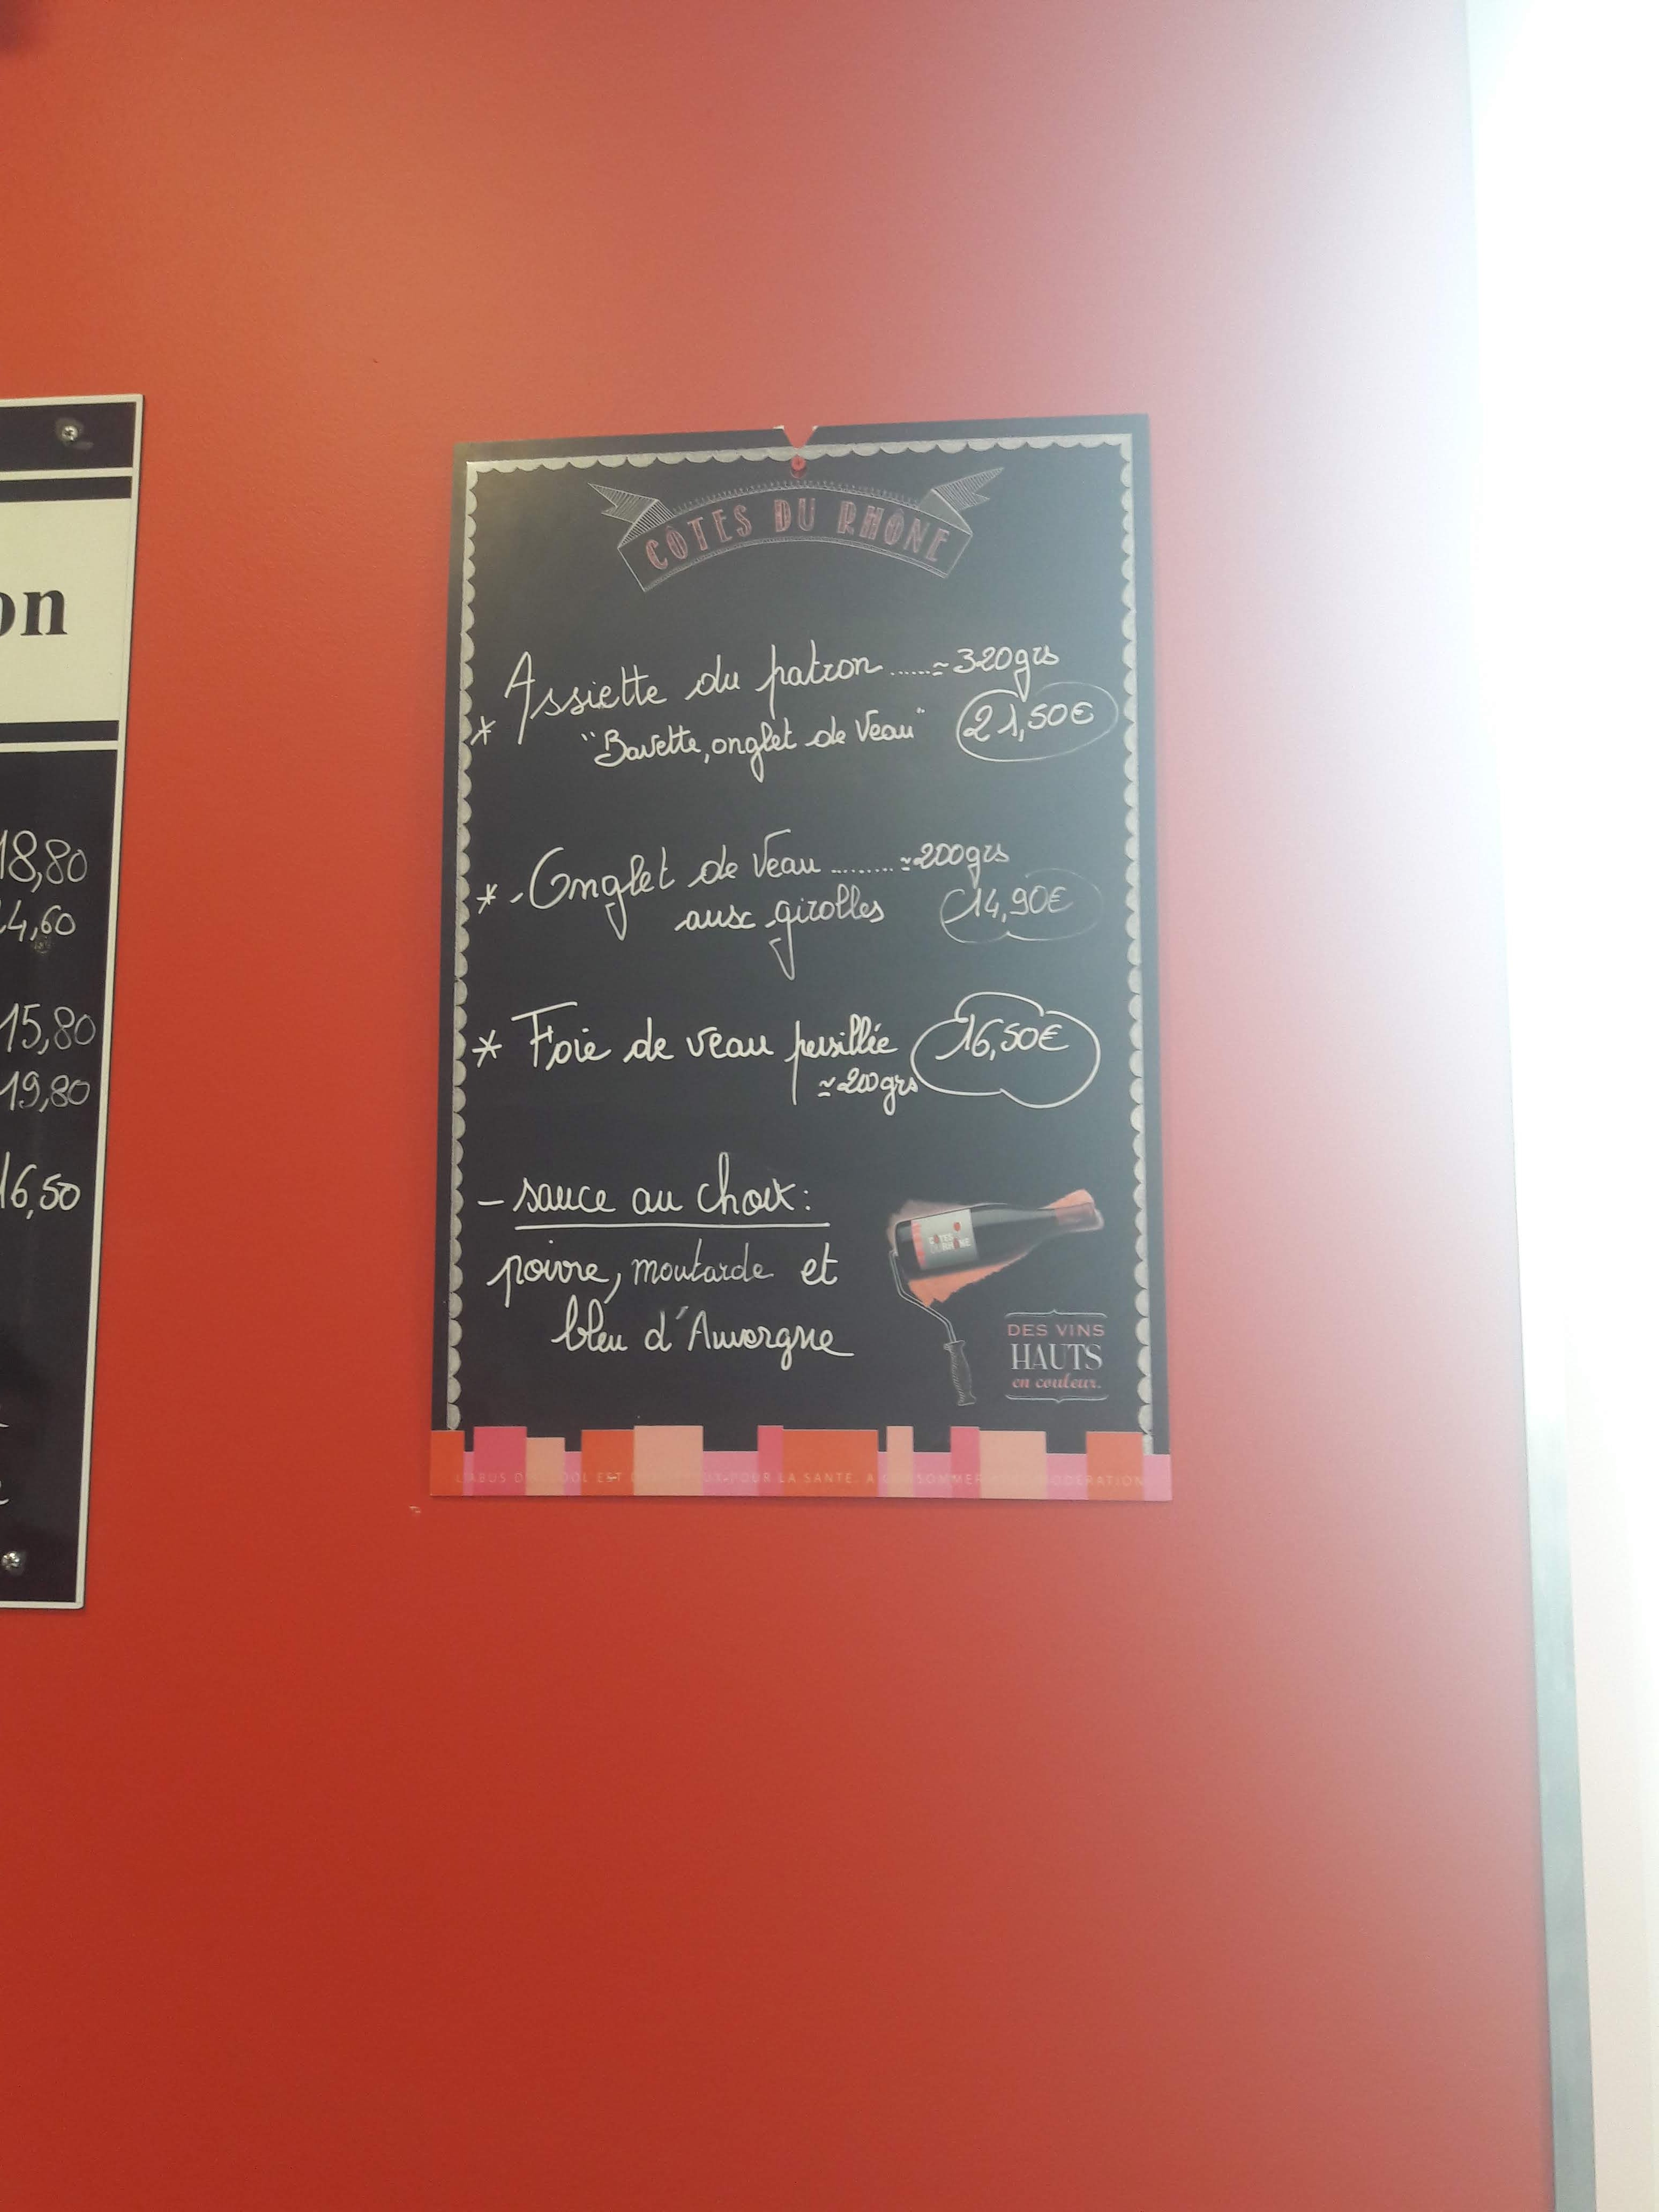 on
18,80
4,60
15,80
19,80
16,50
CÔTES DU RHÔNE
* Assiette du patron ......≃ 320grs
"Bavette, onglet de Veau" 21,50€
* Onglet de Veau ......... ≃200grs
aux girolles 14,90€
* Foie de veau persillée 16,50€
≃200grs
- sauce au choix:
poivre, moutarde et
bleu d'Auvergne
CÔTES
DU RHÔNE
DES VINS
HAUTS
en couleur.
L'ABUS D'ALCOOL EST DANGEREUX POUR LA SANTÉ. A CONSOMMER AVEC MODÉRATION